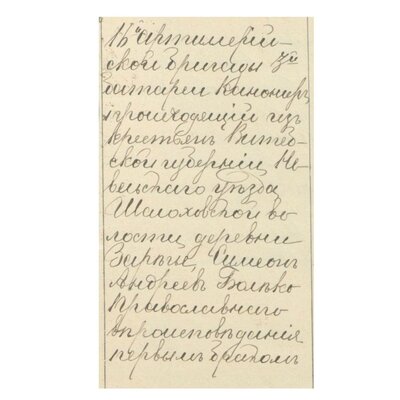 15ой Артиллерий-
ской бригады 3ей
батареи Канониръ,
происходящій изъ
крестьянъ Витеб-
ской губерніи, Не-
вельскаго уѣзда
Шалоховской во-
лости, деревни
Симеонъ
Андреевъ Болько
Православнаго
вѣроисповѣданія
первымъ бракомъ